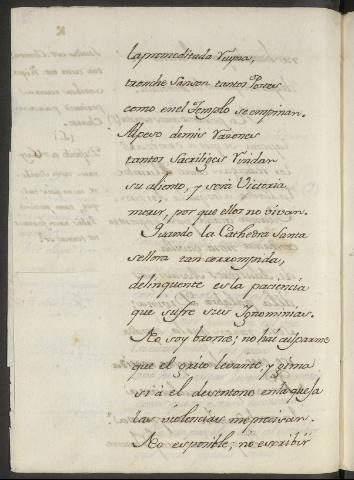 la premeditada Ruyna,
tronche Sanson tantos Postes
como en el Templo se empinan.
Al peso de mis razones
tantos Sacrilegos rindan
su aliento, y será Victoria
morir, por que ellos no vivan.
Quando la Cathedra Santa
se llora tan corrompida,
delinquente es la paciencia
que sufre sus Ignominias.
No soy bronce; no hai
que el grito levante, y gima
si á el desentono en la quexa
las violencias me
No es posible; no escribir